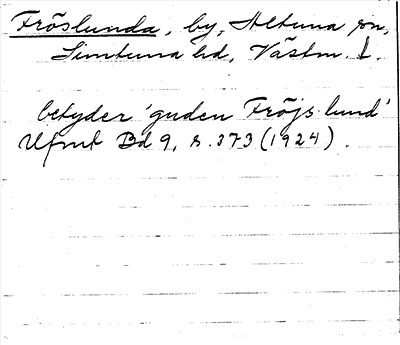 Fröslunda, by, Altuna sn,
Simtuna hd, Västm. l.
betyder 'guden Fröjs lund'
Ufmt Bd 9, s. 373 (1924).